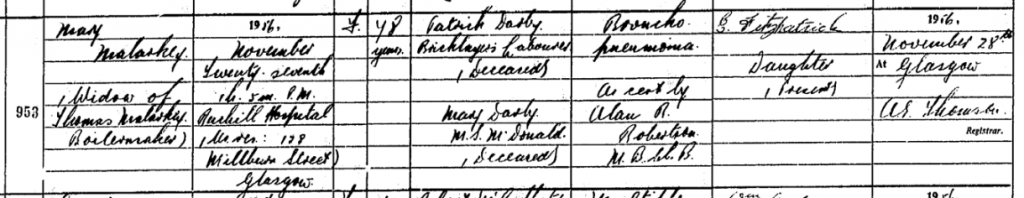 953
Mary
Malaskey.
(Widow of
Thomas Malaskey
Boilermaker)
1956.
November
Twenty-seventh
1h. 5m. P.M.
Ruchill Hospital
(Usual Res: 128
Millburn Street)
Glasgow.
F.
48
years.
Patrick Darby
Bricklayer's Labourer
(Deceased)
Mary Darby
M.S. McDonald.
(Deceased)
Broncho.
pneumonia.
As cert by
Alan R.
Robertson.
M.B. Ch. B.
Fitzpatrick
Daughter
(Present)
1956.
November 28th
At Glasgow
Thomson
Registrar.
1956.